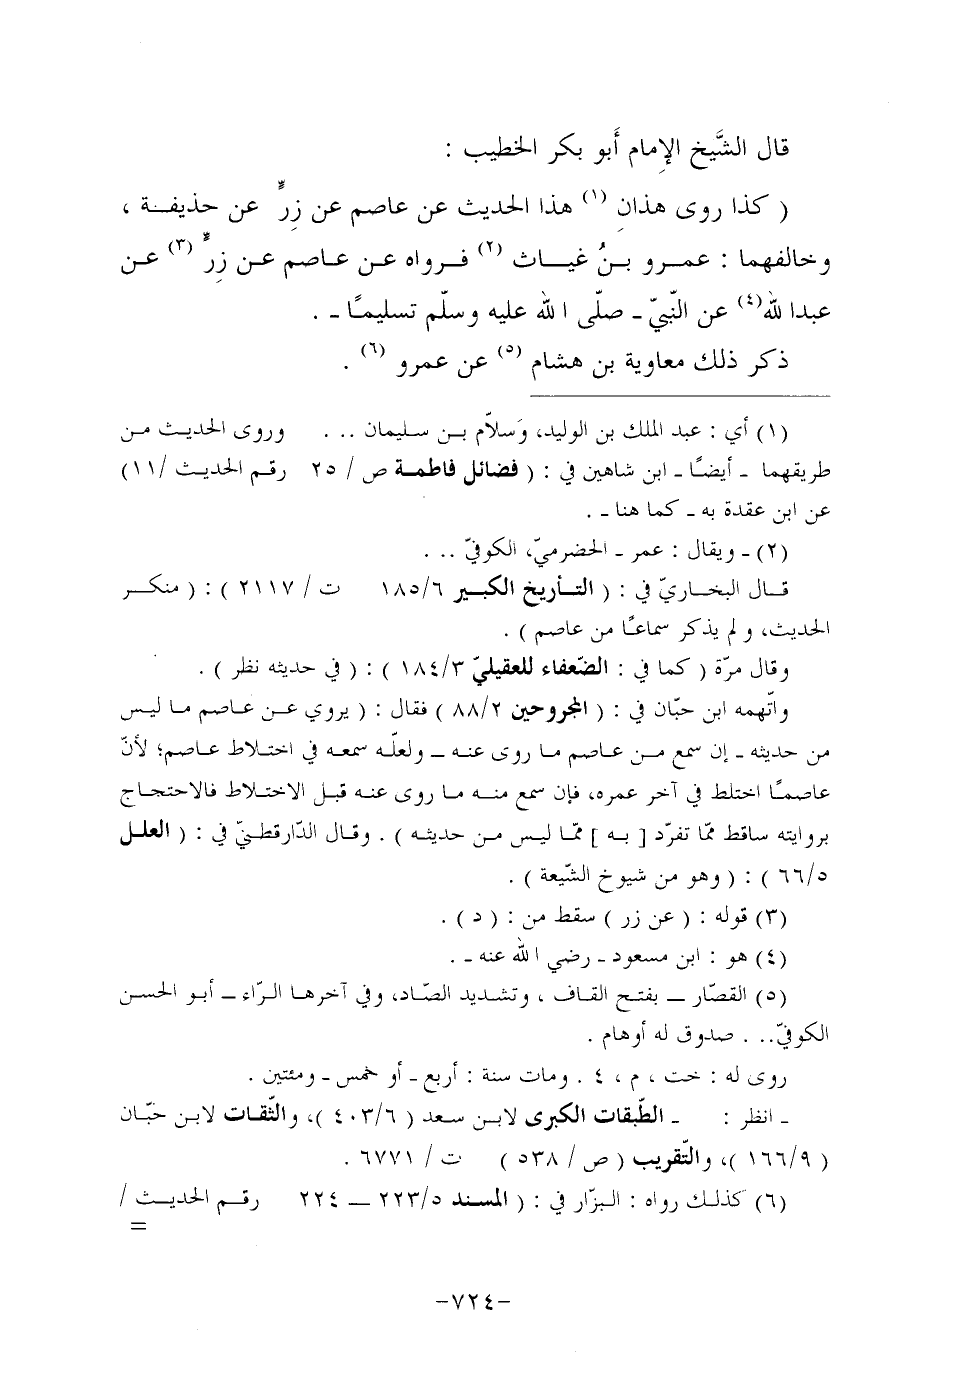 قال الشَّيخ الإمام أبو بكر الخطيب :
( كذا روى هذان (١) هذا الحديث عن عاصم عن زِرٍّ عن حذيفـة ،
وخالفهما : عمـرو بـنُ غيـاث (٢) فـرواه عـن عـاصم عـن زِرٍّ (٣) عن
عبدا لله(٤) عن النَّبيّ ـ صلّى ا لله عليه وسلّم تسليمًا ـ .
ذكر ذلك معاوية بن هشام (٥) عن عمرو (٦) .
(١) أي : عبد الملك بن الوليد، وَسلاّم بـن سـليمان ... وروى الحديـث مـن
طريقهما ـ أيضًـا ـ ابن شاهين في : ( فضائل فاطمـة ص / ٢٥ رقـم الحديـث /١١)
عن ابن عقدة به ـ كما هنا ـ .
(٢) ـ ويقال : عمر ـ الحضرميّ، الكوفيّ ... .
قـال البخـاريّ في : ( التـأريخ الكبـير ١٨٥/٦ ت / ٢١١٧ ) : ( منكـر
الحديث، و لم يذكر سماعًا من عاصم ) .
وقال مرّة ( كما في : الضّعفاء للعقيليّ ١٨٤/٣ ) : ( في حديثه نظر ) .
واتّهمه ابن حبّان في : ( المجروحين ٨٨/٢ ) فقال : ( يروي عـن عـاصم مـا ليـس
من حديثه ـ إن سمع مـن عاصم مـا روى عنـه ـ ولعلّـه سمعـه في اختـلاط عـاصم؛ لأنّ
عاصمًـا اختلط في آخر عمره، فإن سمع منـه مـا روى عنه قبـل الاختـلاط فالاحتجـاج
بروايته ساقط ممّا تفرّد [ بـه ] ممّا ليـس مـن حديثـه ) . وقـال الدّارقطـنيّ في : ( العلـل
٦٦/٥ ) : ( وهو من شيوخ الشّيعة ) .
(٣) قوله : ( عن زر ) سقط من : ( د ) .
(٤) هو : ابن مسعود ـ رضي ا لله عنه ـ .
(٥) القصّار ــ بفتـح القـاف ، وتشديد الصّاد، وفي آخرهـا الـرّاء ــ أبـو الحسـن
الكوفيّ... . صدوق له أوهام .
روى له : خت ، م ، ٤ . ومات سنة : أربع ـ أو خمس ـ ومئتين .
ـ انظر : ـ الطّبقات الكبرى لابـن سـعد ( ٤٠٣/٦ )، والثّقـات لابـن حبّـان
( ١٦٦/٩ )، والتّقريب ( ص / ٥٣٨ ) ت / ٦٧٧١ .
(٦) كذلـك رواه : البزّار في : ( المسند ٢٢٣/٥ ــ ٢٢٤ رقـم الحديـث /
=
-٧٢٤-